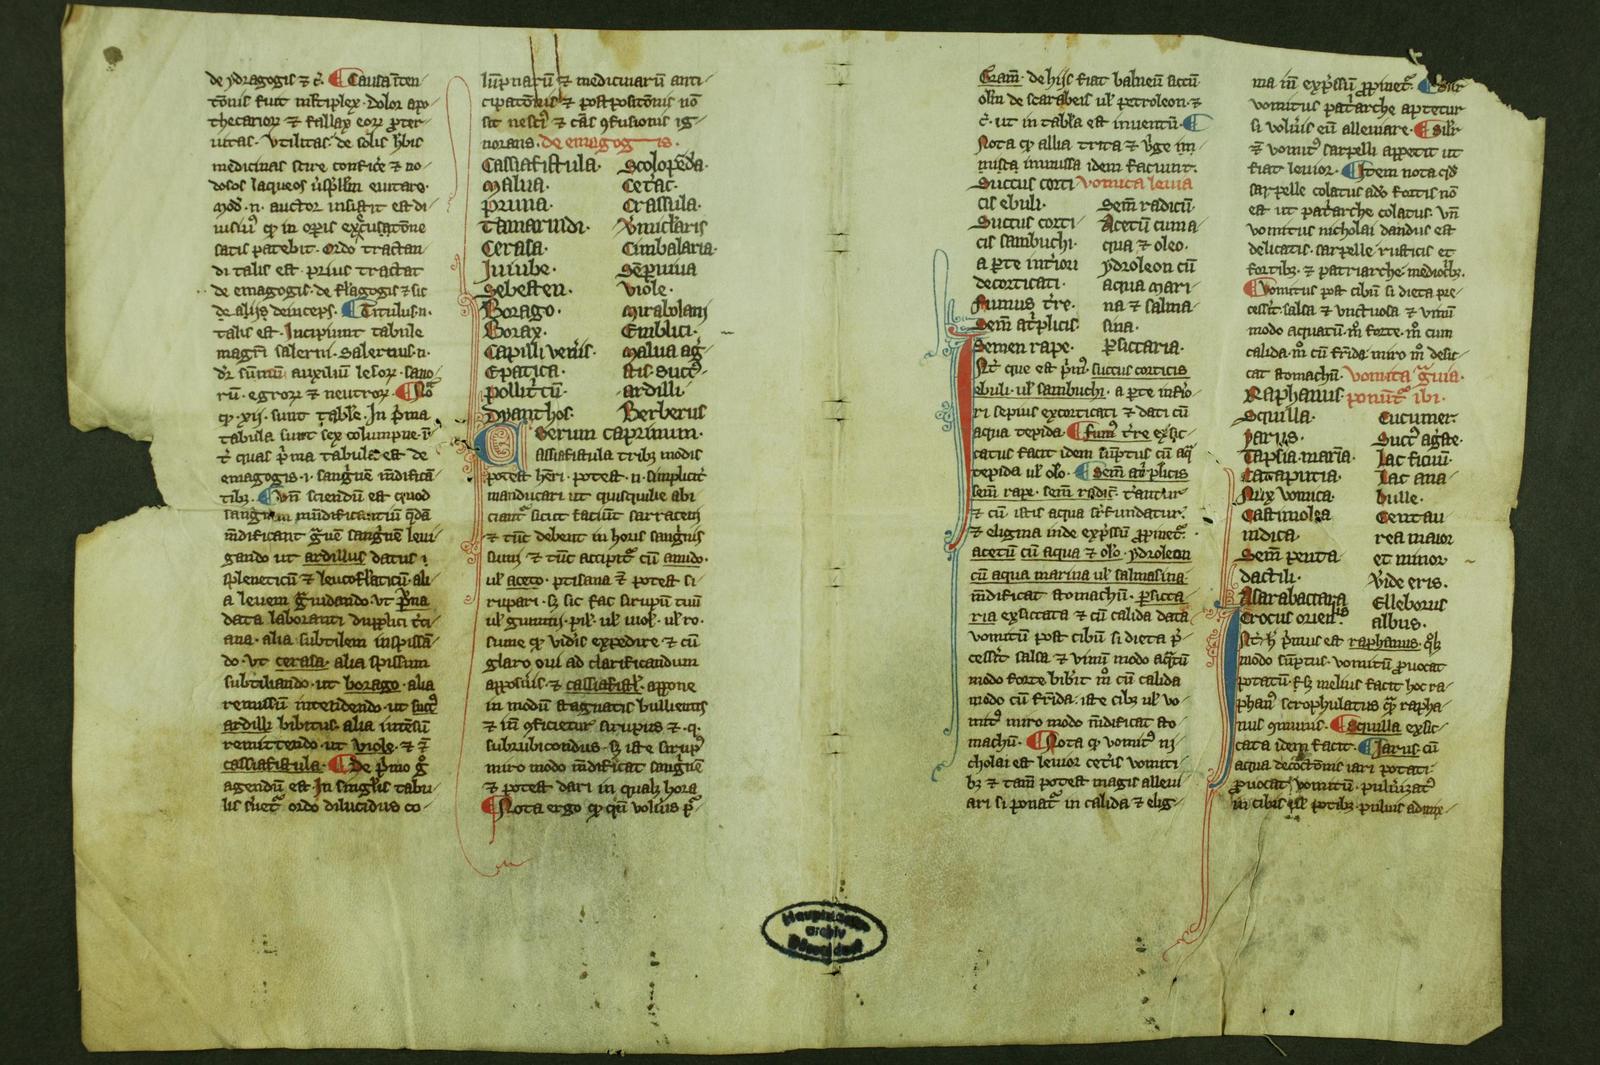 de ydragogis ⁊ c̄. Causa īten-
tōnis fuit mltiplex. dolor apo-
thecarioꝝ ⁊ fallax eoꝝ ꝓter-
uitas. Vtilitas de solis hͥbis
medicinas scire confice᷑ ⁊ no-
dosos laqueos euitare.
auctor insistit est di-
ꝙ in opͥs excusatōne
satis patebit. Ordo tractan-
di talis est. prius tractat
de emagogis. de flagogis ⁊ sic
de alijs deinceps. Titulus .n.
talis est. Incipiunt tabule
magr̄i salerni. Salernus .n.
dr̄ sūmū auxiliū lesoꝝ. sano-
rū. egroꝝ ⁊ neutroꝝ. Noͣ
ꝙ .xij. sunt table. In pͥma
tabula sunt sex columpne. ī-
t᷑ quas pͥma tabula est de
emagogis .i. sanguinē mūdificā-
tibꝫ. Vn̄ sciendū est quod
mūdificantiū qͦdā
mūdificant gͣuē sanguinē leui-
gando ut ardillus datus
spleneticū ⁊ leucoflaticū. ali-
a leuem gͣuidando. vt pͥna
data laboranti dupplici t᷑ci-
ana. alia subtilem inspissā-
do. vt cerasa. alia spissum
subtiliando. ut borago. alia
remissū intendendo. ut sucꝰ
ardilli bibitus. alia intēsū
remittendo. ut viole. ⁊
cassiafistula. De pͥmo gͦ
agendū est. In singlis tabu-
lis suet᷑ ordo dilucidus co-
⁊ medicinarū anti-
cipatōnū ⁊ postpositōnis nō
sit nesciꝰ ⁊ cās ꝯfusionis ig-
norans. de emagogis.
Cassiafistula. Scolopēdia.
Malua. Cetrac.
Pruna. Crassula.
Tamarindi. Vmiclaris
Cerasa. Cimbalaria.
Iuiube. Sēpuiua
Sebesten. Viole.
Borago. Mirabolani
Borax. Emblici.
Capilli venͥis. Malua ag᷑-
Epatica. stis. Sucꝰ
Pollitͥcū. ardilli.
Dyanthos. Berberus
Serum caprinum.
Cassiafistula tribꝫ modis
potest hēri. potest .n. simplicit᷑
manducari ut quisquilie abi-
ciant᷑ sicut faciūt sarraceni
⁊ tūc debent in hous sanguis
sumi ⁊ tūc accipit᷑ cū amido.
uł aceto. ptisana potest si-
rupari. sꝫ sic fac sirupū tuū
uł gummi. pił. uł uioł. uł ro.
sume ꝙ videris expedire ⁊ cū
glaro oui ad clarificandum
appositis. ⁊ cassiafistł. appone
in modū stagnatis bullientis
⁊ īn̄ ꝯficiet᷑ sirupus
subrubicondus. sꝫ iste sirupꝰ
miro modo mūdificat sanguinē
⁊ potest dari in qualꝫ hora
Nota ergo ꝙ qn̄ voluis
Gram. de hijs fiat balneū actū
olin de scarabeis uł petroleon ⁊
c̄. ut in tabla est inuentū.
Nota ꝙ allia trita ⁊ vge im
mista inmissa idem faciunt.
Succus corti- vomita leuia
cis ebuli. Semē radicū.
Succus corti- Acetū cum a-
cis sambuchi. qua ⁊ oleo.
a parte int᷑iori ydroleon cū
decorticati. aqua mari-
Fumus t᷑re. na ⁊ salma-
Semē at᷑plicis. sina.
Semen rape. Psiccaria.
Int᷑ que est pͥmꝰ succus corticis
ebuli. uł sambuchi. a parte inf᷑io-
ri sepius excorticati ⁊ dati cū
aqua tepida. Fumꝰ t᷑re exsic-
catus facit idem sūptus cū aqͣ
tepida uł oło. Semē at᷑plicis
semē rape. semē radic̄. terant᷑
⁊ cū istis aqua
⁊ eligma inde expͥssū ꝓpinet᷑.
acetū cū aqua ⁊ oło. ydroleon
cū aqua marina uł salmasina.
mūdificat stomachū. psicca-
ria exsiccata ⁊ cū calida data
vomitū post cibū si dieta pͥ-
cessit salsa ⁊ vinū modo aqͣtū
modo forte bibit mͦ cū calida
modo cū frͥida. iste cibꝫ uł vo-
mitꝰ miro modo mūdificat sto-
machū. Nota ꝙ vomitꝰ ni-
cholai est leuior cetis vomiti-
bꝫ ⁊ tam̄ potest magis alleui-
ari si ponat᷑ in calida ⁊ elig-
ma īn̄ expͥssū ꝓpinet᷑.
vomitus pat᷑arche aptetur
si voluis eū alleuiare.
⁊ vomitꝰ sarpelli appetit ut
fiat leuior. Item nota qd̄
sarpelle colatus adō fortis nō
est ut pat᷑arche colatus. vn̄
vomitus nicholai dandus est
delicatis. sarpelle rusticis et
fortibꝫ. ⁊ patriarche mediocͥbꝫ.
Vomitus post cibū si dieta pre-
cessit salsa ⁊ vnctuosa ⁊ vinū
modo aquatū. mͦ forte. mͦ cum
calida. mͦ cū frͥida miro mͦ desic-
cat stomachū. vomita gͣuia.
Raphanus. ponūt᷑ ibi.
Squilla. Cucumer.
Yarus. Sucꝰ agͣste.
Tapsia maria. Lac ficuū.
Catapucia. Lac ana-
Nux vomica. bulle.
Castimolea Centau-
indica. rea maior
Semē penta- et minor
dactili. Vide eris.
Asarabaccara Elleborus
Crocus orient. albus.
Int᷑ hͦ pͥmus est raphanus. qͥ
modo sūptus. vomitū ꝓuocat
potatū. sꝫ melius facit hoc ra-
phanꝰ scrophulatus qͣ rapha-
nus ꝯmunis. Squilla exsic-
cata idem facit. Iarus cū
aqua decoctōnis iari potati
ꝓuocat vomitū. puluizatꝰ
in cibis uł potibꝫ. puluis admix-
Hauptstaats
archiv
Düsseldorf